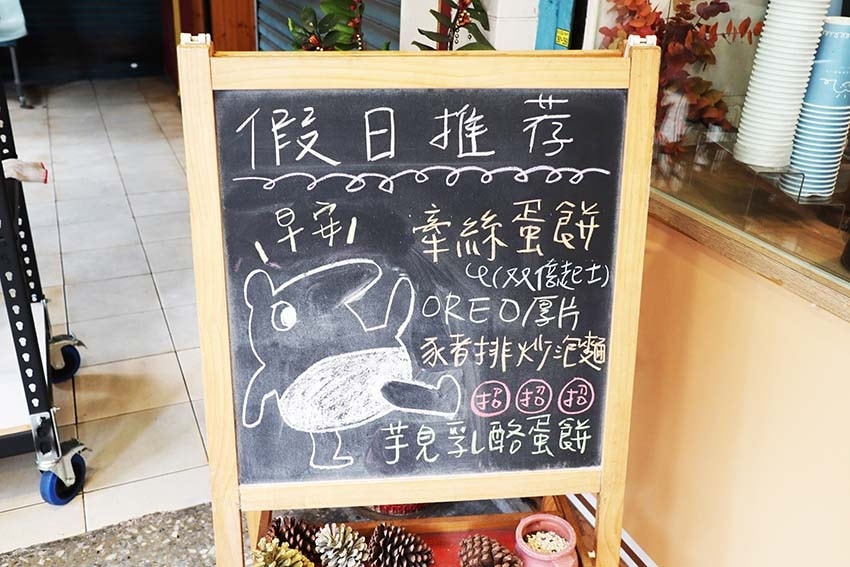 假日推荐
早安
牽絲蛋餅
(双倍起士)
OREO厚片
豬排炒泡麵
招招招
芋見乳酪蛋餅